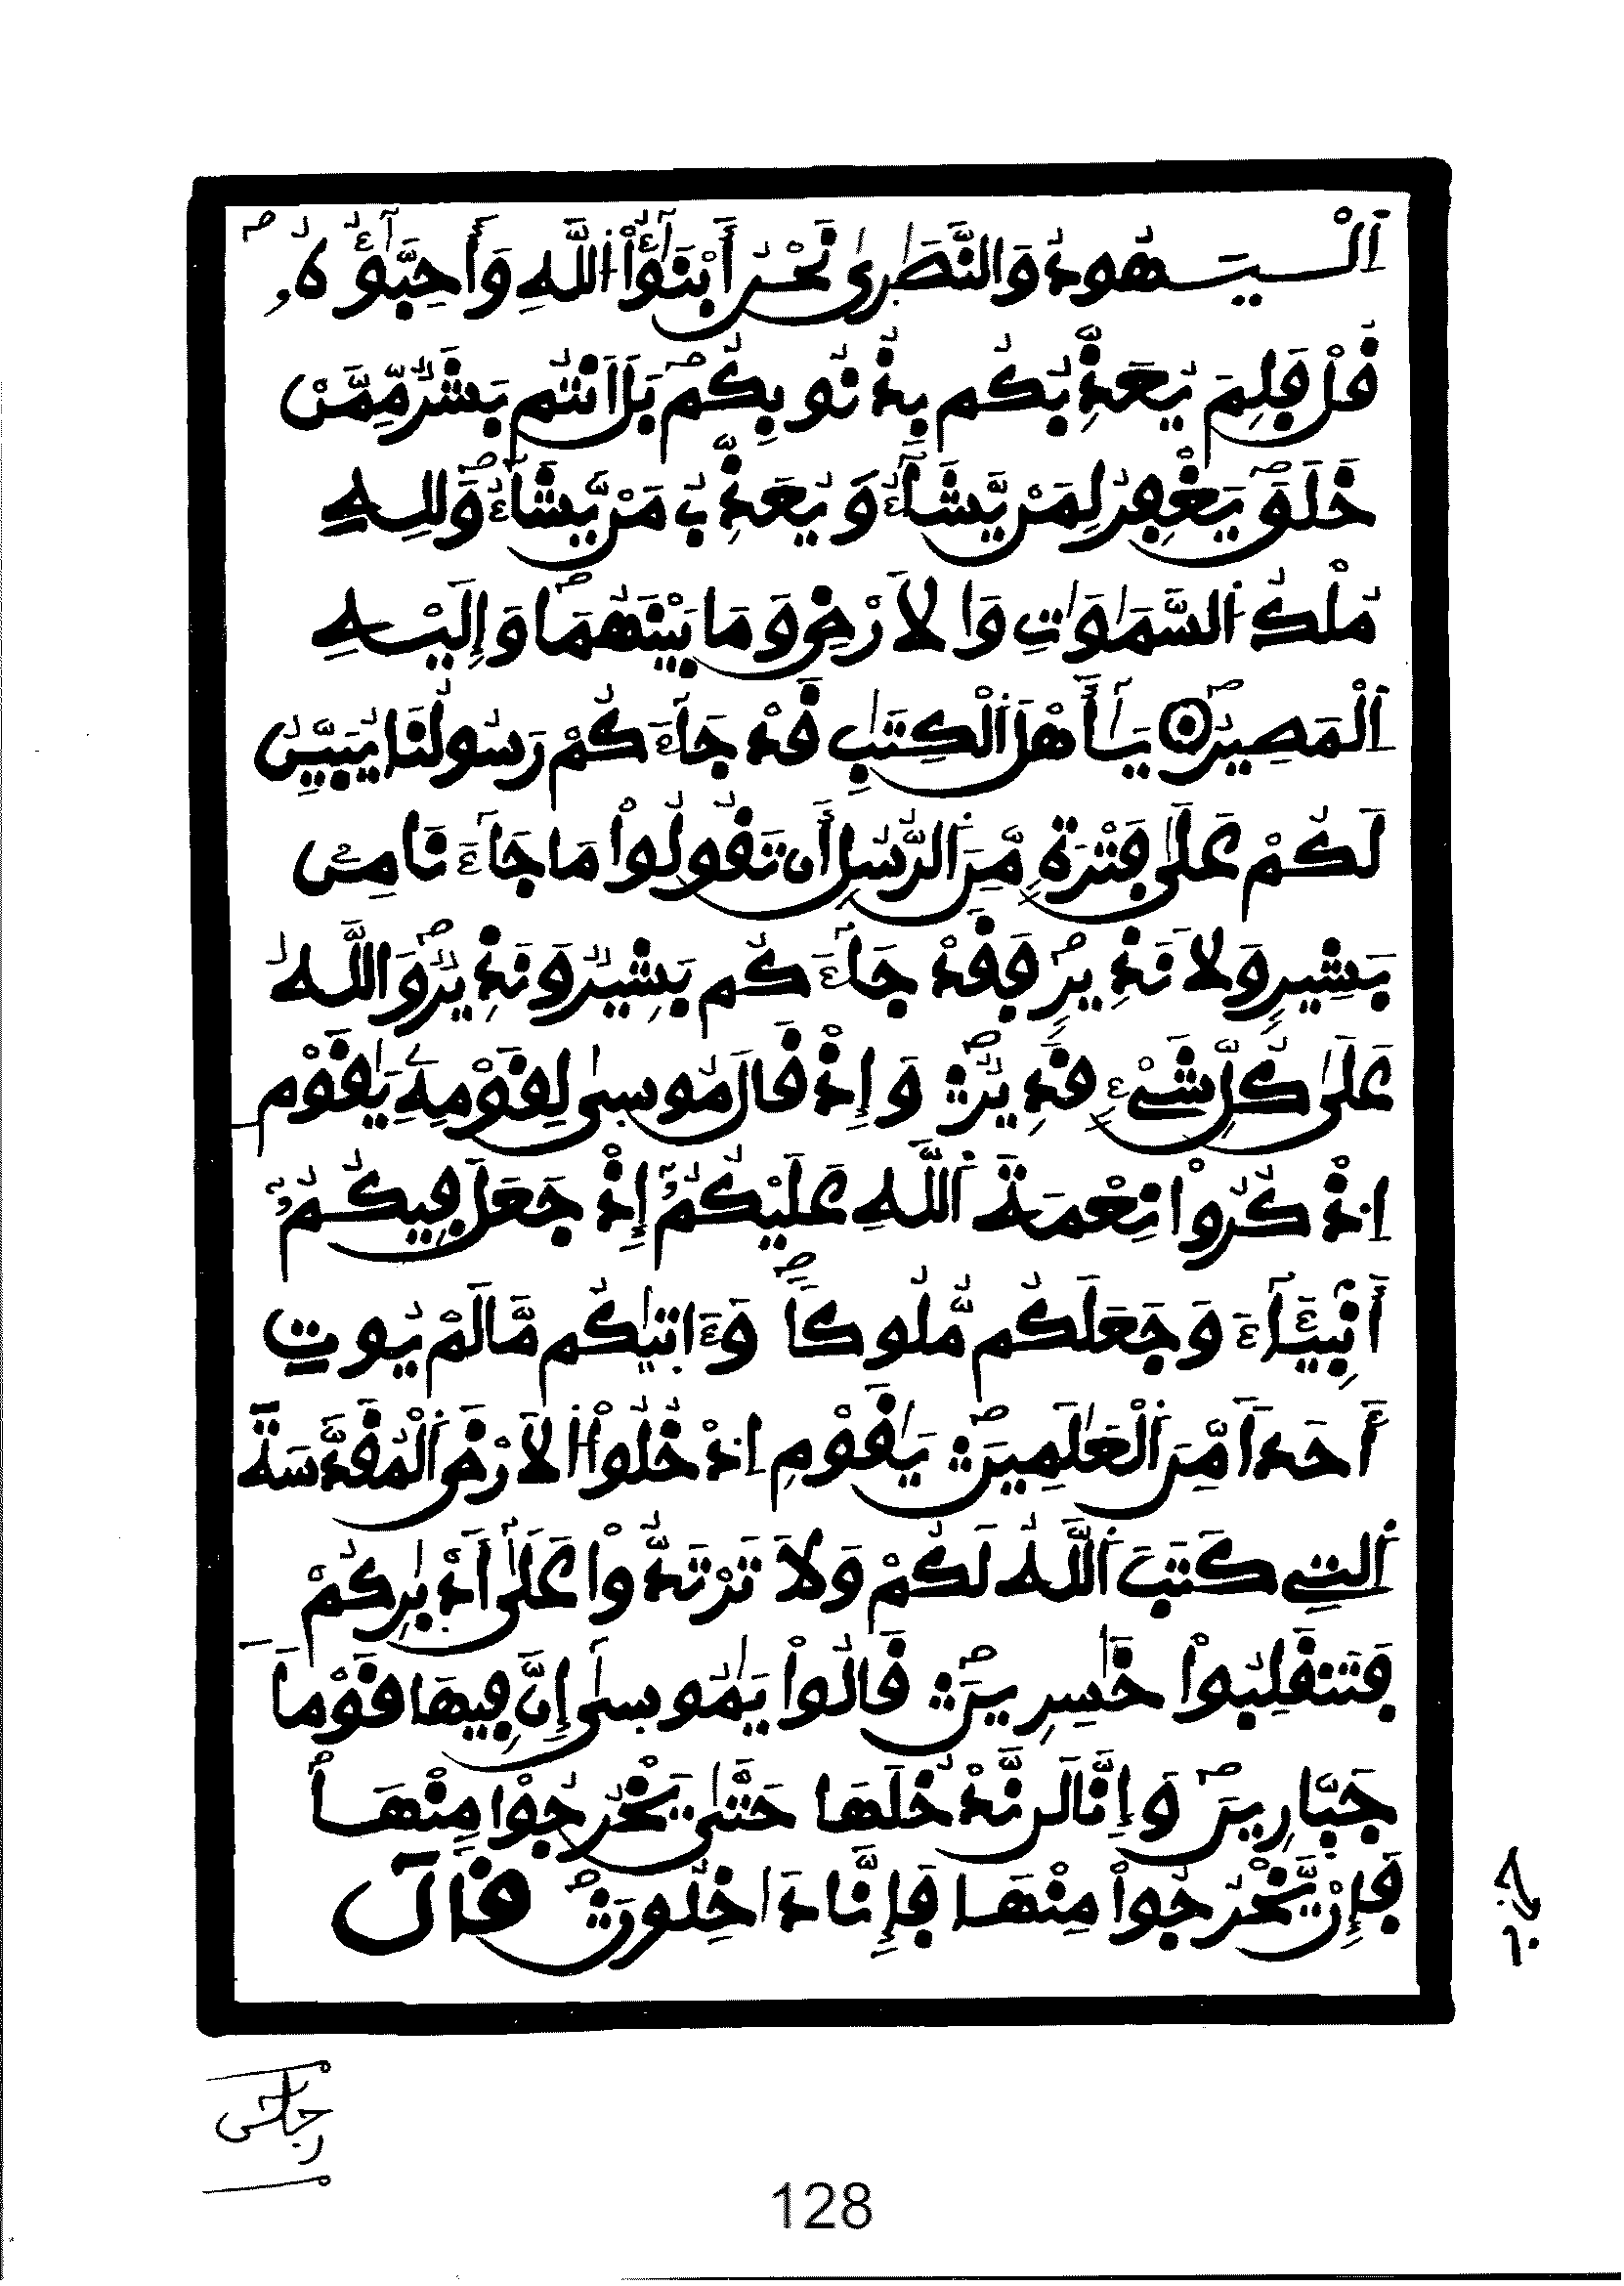 اَ۬لْيَهُودُ وَالنَّصَٰر۪يٰ نَحْنُ أَبْنَٰٓؤُاْ اُ۬للَّهِ وَأَحِبَّٰٓؤُهُۥۖ
قُلْ فَلِمَ يُعَذِّبُكُم بِذُنُوبِكُمۖ بَلَ اَنتُم بَشَرٞ مِّمَّنْ
خَلَقَۖ يَغْفِرُ لِمَنْ يَّشَآءُ وَيُعَذِّبُ مَنْ يَّشَآءُۖ وَلِلهِ
مُلْكُ اُ۬لسَّمَٰوَٰتِ وَالَارْضِ وَمَا بَيْنَهُمَاۖ وَإِلَيْهِ
اِ۬لْمَصِيرُۖ ۞ يَٰٓأَهْلَ اَ۬لْكِتَٰبِ قَدْ جَآءَكُمْ رَسُولُنَا يُبَيِّنُ
لَكُمْ عَلَىٰ فَتْرَةٖ مِّنَ اَ۬لرُّسُلِ أَن تَقُولُواْ مَا جَآءَنَا مِنۢ
بَشِيرٖ وَلَا نَذِيرٖۖ فَقَدْ جَآءَكُم بَشِيرٞ وَنَذِيرٞۖ وَاللَّهُ
عَلَىٰ كُلِّ شَےْءٖ قَدِيرٞۖ وَإِذْ قَالَ مُوس۪يٰ لِقَوْمِهِۦ يَٰقَوْمِ
اِ۟ذْكُرُواْ نِعْمَةَ اَ۬للَّهِ عَلَيْكُمُۥٓ إِذْ جَعَلَ فِيكُمُۥٓ
أَنۢبِيَٰٓـَٔآءَ وَجَعَلَكُم مُّلُوكاٗۖ وَءَات۪يٰكُم مَّا لَمْ يُوتِ
أَحَداٗ مِّنَ اَ۬لْعَٰلَمِينَۖ يَٰقَوْمِ اِ۟دْخُلُواْ اُ۬لَارْضَ اَ۬لْمُقَدَّسَةَ
اَ۬لتِے كَتَبَ اَ۬للَّهُ لَكُمْ وَلَا تَرْتَدُّواْ عَلَىٰٓ أَدْبٰ۪رِكُمْ
فَتَنقَلِبُواْ خَٰسِرِينَۖ قَالُواْ يَٰمُوس۪يٰٓ إِنَّ فِيهَا قَوْماٗ
جَبّ۪ارِينَۖ وَإِنَّا لَن نَّدْخُلَهَا حَتَّىٰ يَخْرُجُواْ مِنْهَاۖ
فَإِنْ يَّخْرُجُواْ مِنْهَا فَإِنَّا دَٰخِلُونَۖ قَالَ
حزب
رجلن
128